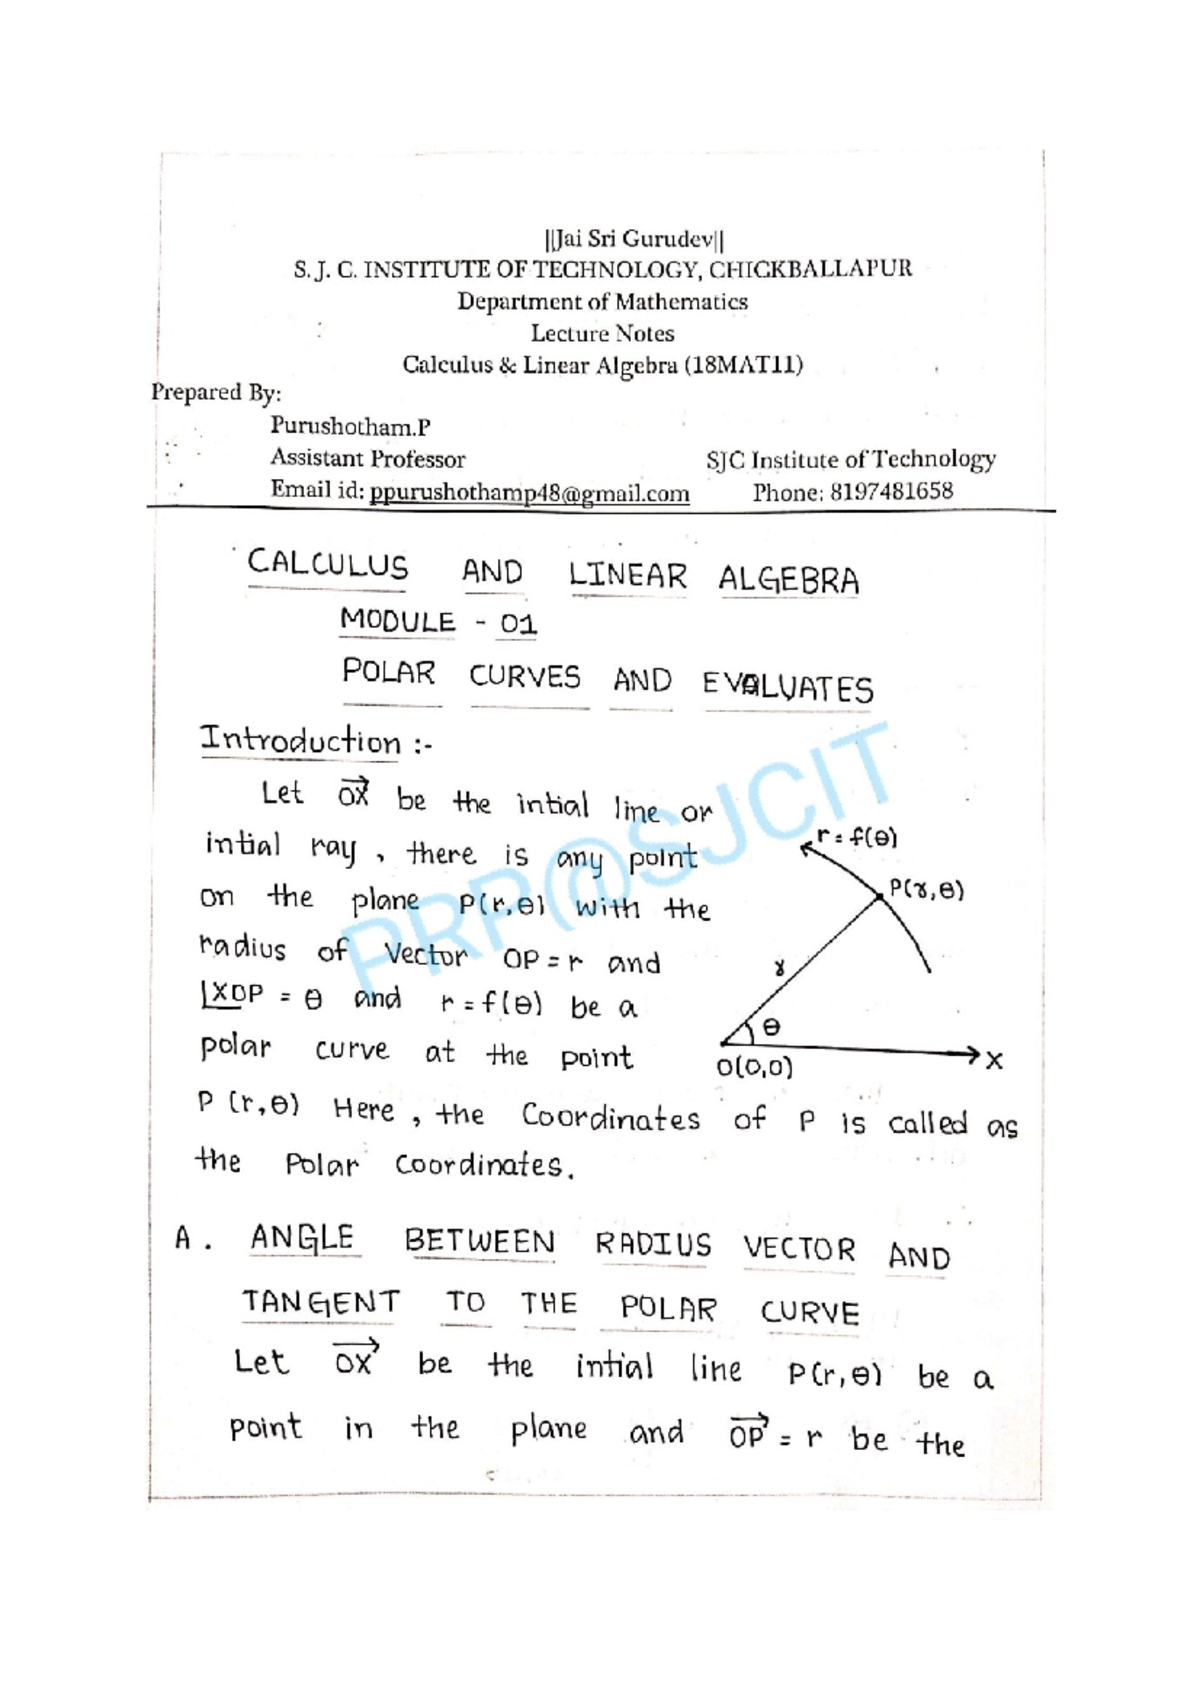 ||Jai Sri Gurudev||
S. J. C. INSTITUTE OF TECHNOLOGY, CHICKBALLAPUR
Department of Mathematics
Lecture Notes
Calculus & Linear Algebra (18MAT11)
Prepared By:
Purushotham.P
Assistant Professor SJC Institute of Technology
Email id: ppurushothamp48@gmail.com Phone: 8197481658
CALCULUS AND LINEAR ALGEBRA
MODULE - 01
POLAR CURVES AND EVALUATES
Introduction :-
Let OX be the intial line or
intial ray, there is any point
on the plane P(r,θ) with the
radius of Vector OP = r and
∠XOP = θ and r = f(θ) be a
polar curve at the point
P (r,θ) Here, the Coordinates of P is called as
the Polar Coordinates.
r = f(θ)
P(r,θ)
r
θ
O(0,0)
X
PRP@SJCIT
A. ANGLE BETWEEN RADIUS VECTOR AND
TANGENT TO THE POLAR CURVE
Let OX be the intial line P(r,θ) be a
point in the plane and OP = r be the